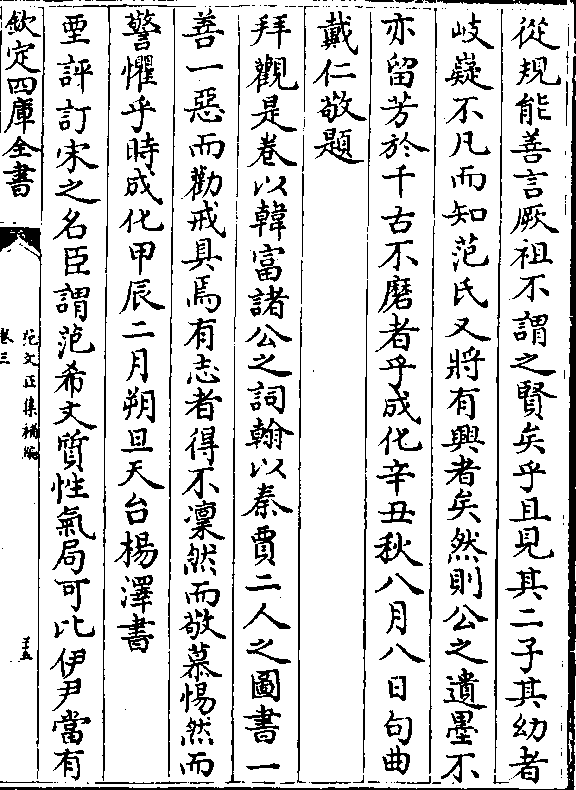 從規能善言厥祖不謂之賢矣乎且見其二子其幼者
岐嶷不凡而知范氏又將有興者矣然則公之遺墨不
亦留芳於千古不磨者乎成化辛丑秋八月八日句曲
戴仁敬題
拜觀是卷以韓富諸公之詞翰以秦賈二人之圖書一
善一惡而勸戒具焉有志者得不凜然而敬慕惕然而
警懼乎時成化甲辰二月朔旦天台楊澤書
堊評訂宋之名臣謂范希文質性氣局可比伊尹當有
欽定四庫全書
范文正集補編
卷三